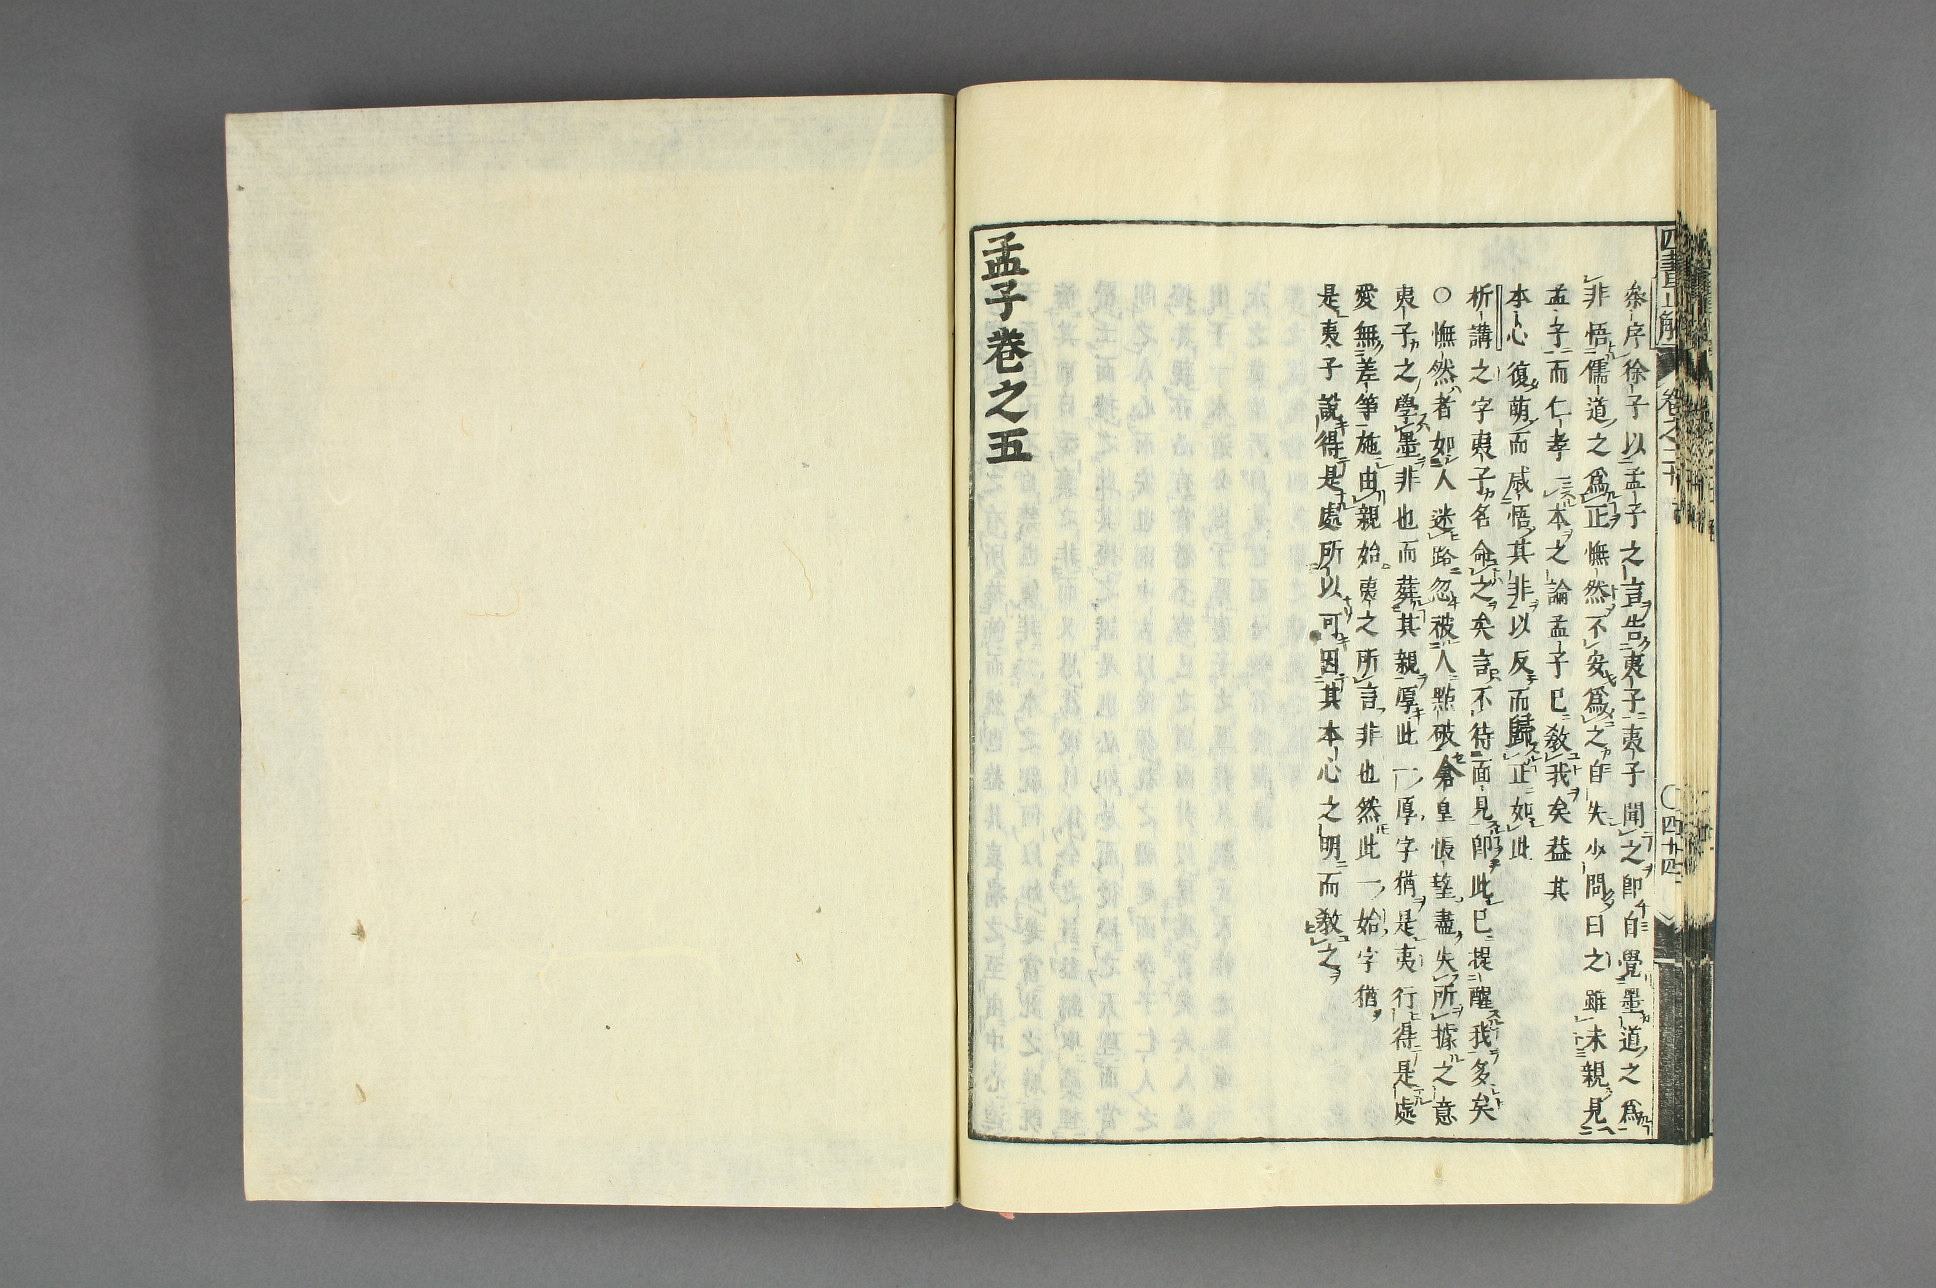 四書直解
卷之二十
四十四
叅序徐子以孟子之言告夷子夷子聞之即自覺墨道之爲
非悟儒道之爲正憮然不安爲之自失少間曰之雖未親見
孟子而仁孝一本之論孟子已敎我矣葢其
本心復萌而感悟其非以反而歸正如此
析講之字夷子名命之矣言不待面見即此已提醒我多矣
○憮然者如人迷路忽被人㸃破倉皇悵望盡失所據之意
夷子之學墨非也而葬其親厚此一厚字猶是夷行得是處
愛無差等施由親始夷之所言非也然此一始字猶
是夷子說得是處所以可因其本心之明而敎之
孟子卷之五